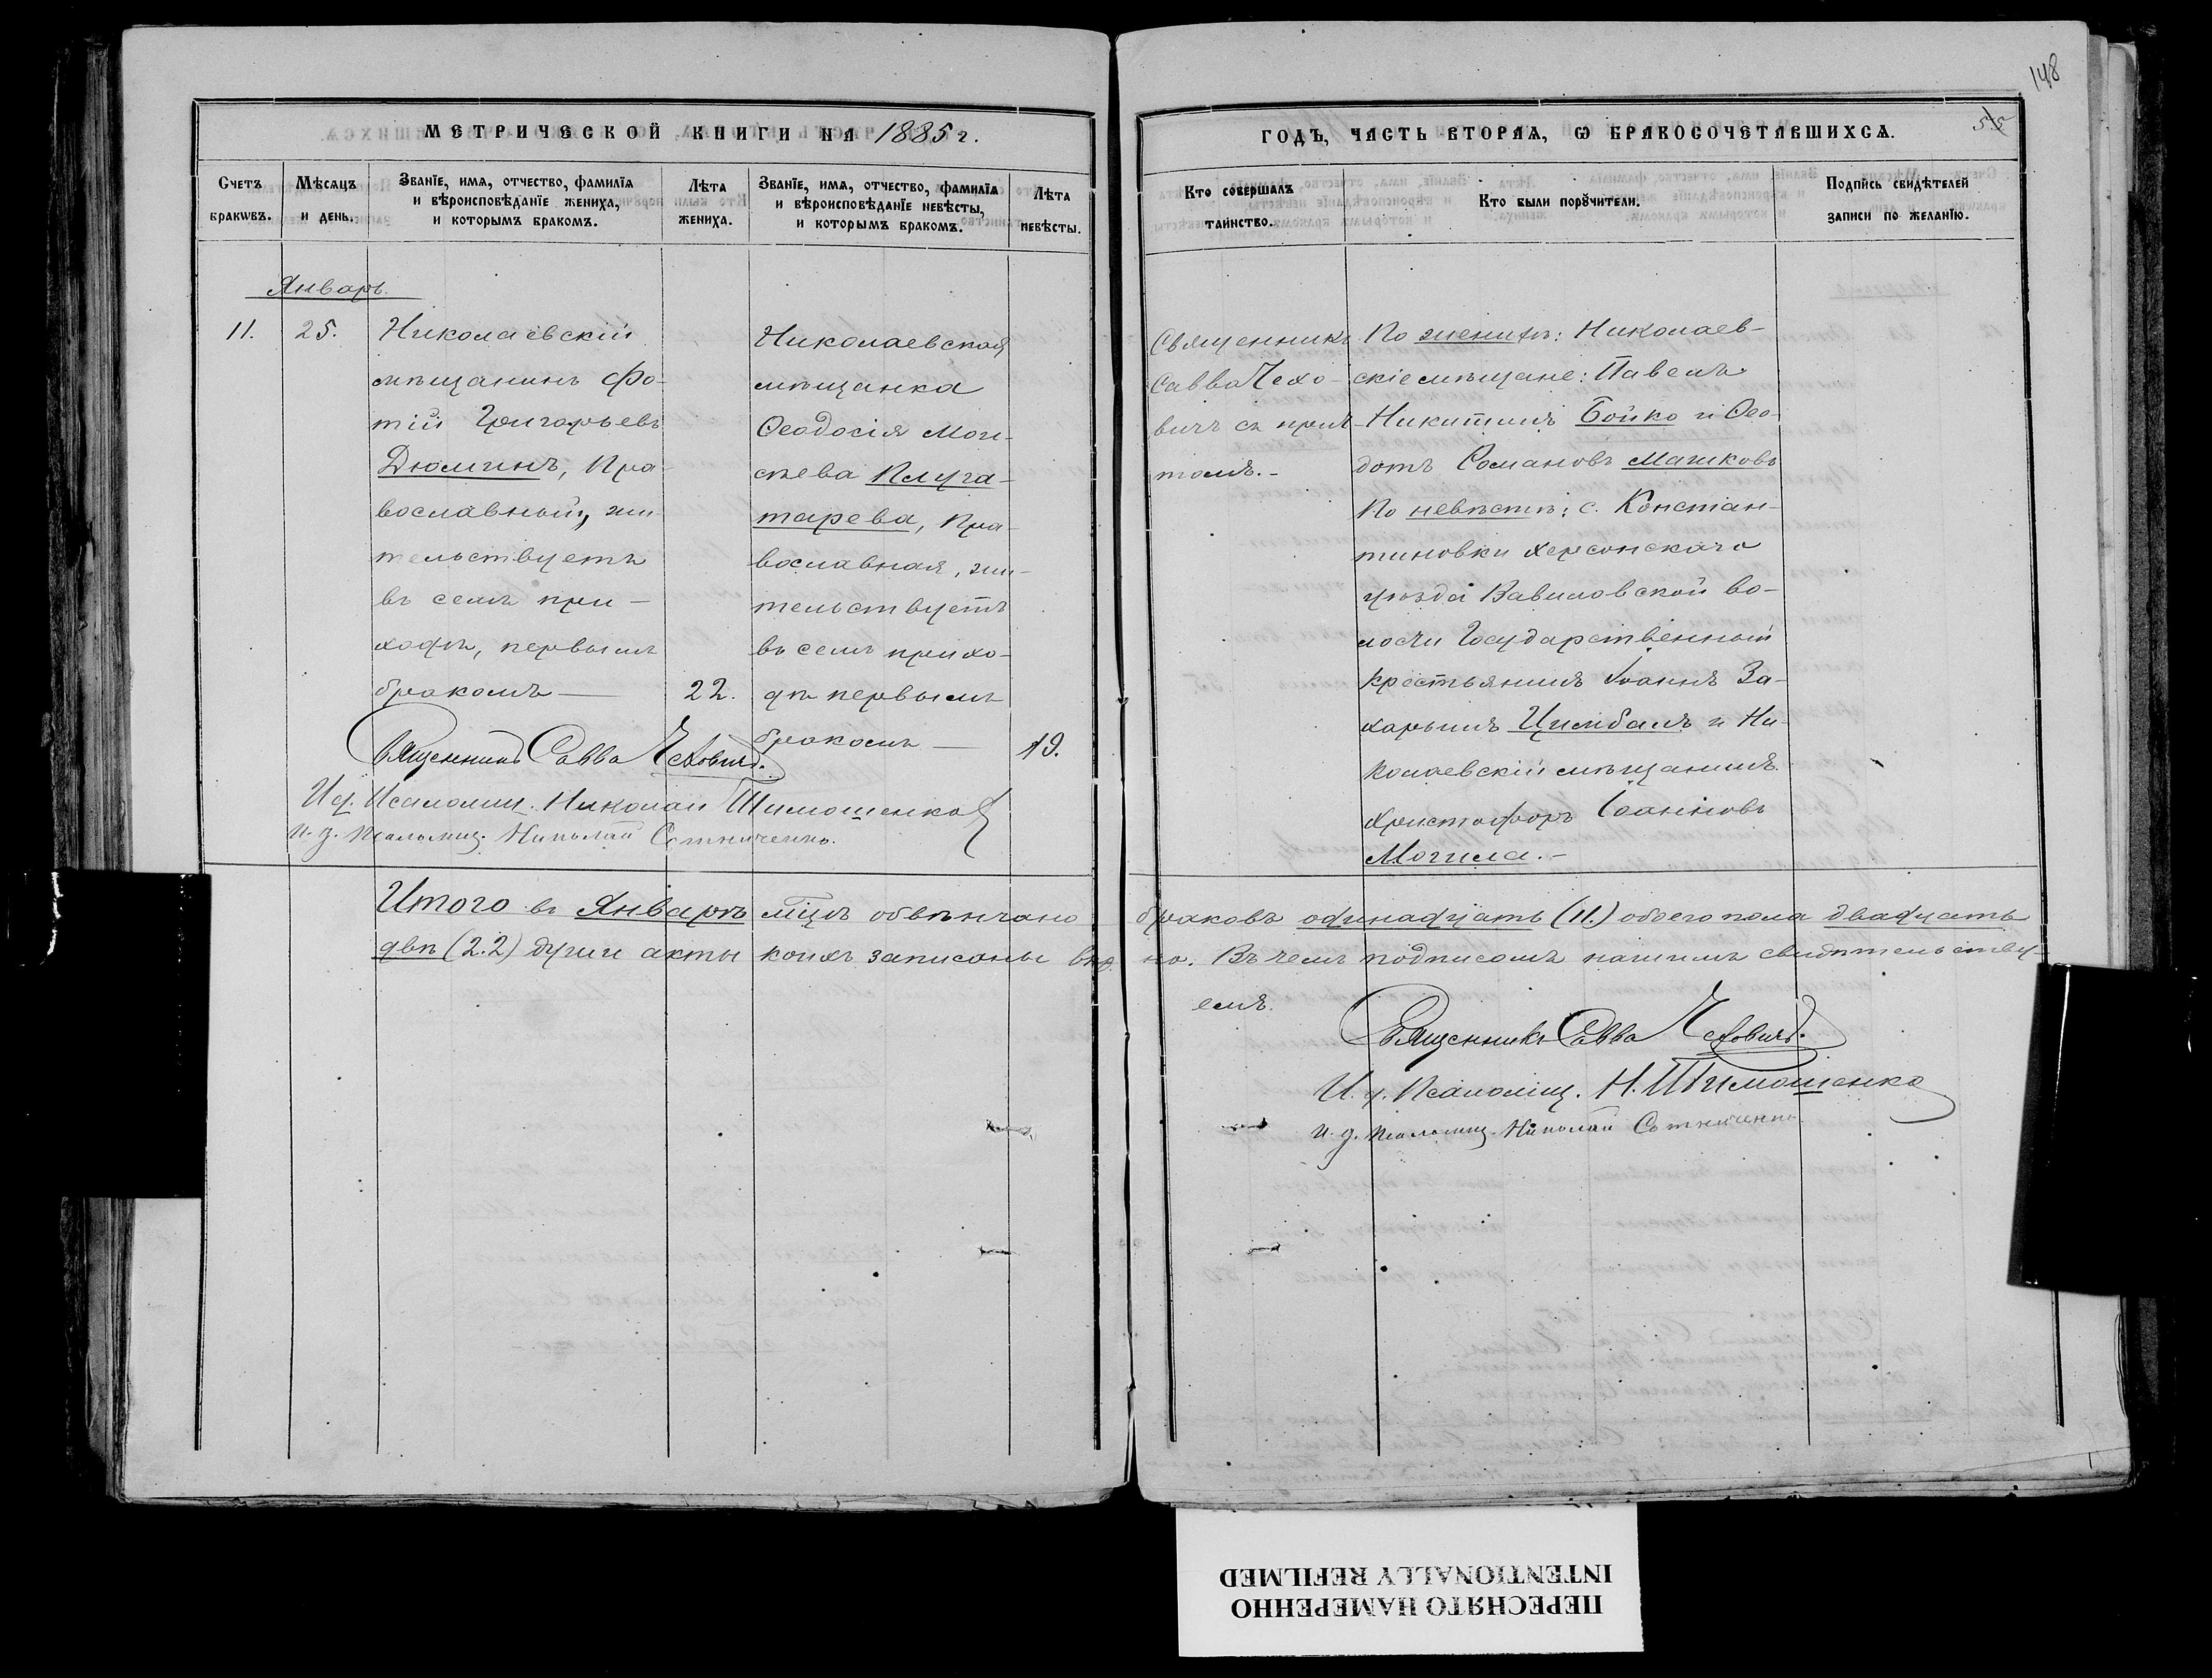 148
МЕТРИЧЕСКОЙ КНИГИ НА 1885 г.
ГОДЪ, ЧАСТЬ ВТОРАЯ, Ѡ БРАКОСОЧЕТАВШИХСЯ.
55
Счетъ браковъ.
Мѣсяцъ и день.
Званіе, имя, отчество, фамилія
и вѣроисповѣданіе жениха,
и которымъ бракомъ.
Лѣта
жениха.
Званіе, имя, отчество, фамилія
и вѣроисповѣданіе невѣсты,
и которымъ бракомъ.
Лѣта
невѣсты.
Кто совершалъ
таинство.
Кто были порꙋчители.
Подпись свидѣтелей
записи по желанію.
Январь.
11.
25.
Николаевскій
мѣщанинъ Фо-
тій Григорьевъ
Дюминъ, Пра-
вославный, жи-
тельствуетъ
въ семъ при-
ходѣ, первымъ
бракомъ
22.
Николаевская
мѣщанка
Ѳеодосія Мои-
сѣева Плуга-
тарева, Пра-
вославная, жи-
тельствуетъ
въ семъ прихо-
дѣ первымъ
бракомъ
19.
Священникъ
Савва Чехо-
вичъ съ прич-
томъ.-
По женихѣ: Николаев-
скіе мѣщане: Павелъ
Никитинъ Бойко и Ѳео-
дотъ Романовъ Машковъ
По невѣстѣ: с. Констан-
тиновки Херсонскаго
уѣзда Вавиловской во-
лости Государственный
крестьянинъ Іоаннъ За-
харьинъ Цимбалъ и Ни-
колаевскій мѣщанинъ
Христофоръ Іоанновъ
Могила.-
Священникъ Савва Чеховичъ.
И.д. Псаломщ. Николай Тимошенко
и.д. псаломщ. Николай Сотниченко.
Итого въ Январѣ мцѣ обвѣнчано браковъ одинадцать (11.) обоего пола двадцать
двѣ (2.2) души акты коихъ записаны вѣр-но. Въ чемъ подписомъ нашимъ свидѣтельству-
емъ.
Священникъ Савва Чеховичъ.
И.д. Псаломщ. Н. Тимошенко
и.д. псаломщ. Николай Сотниченко
ПЕРЕСНЯТО НАМЕРЕННО
INTENTIONALLY REFILMED